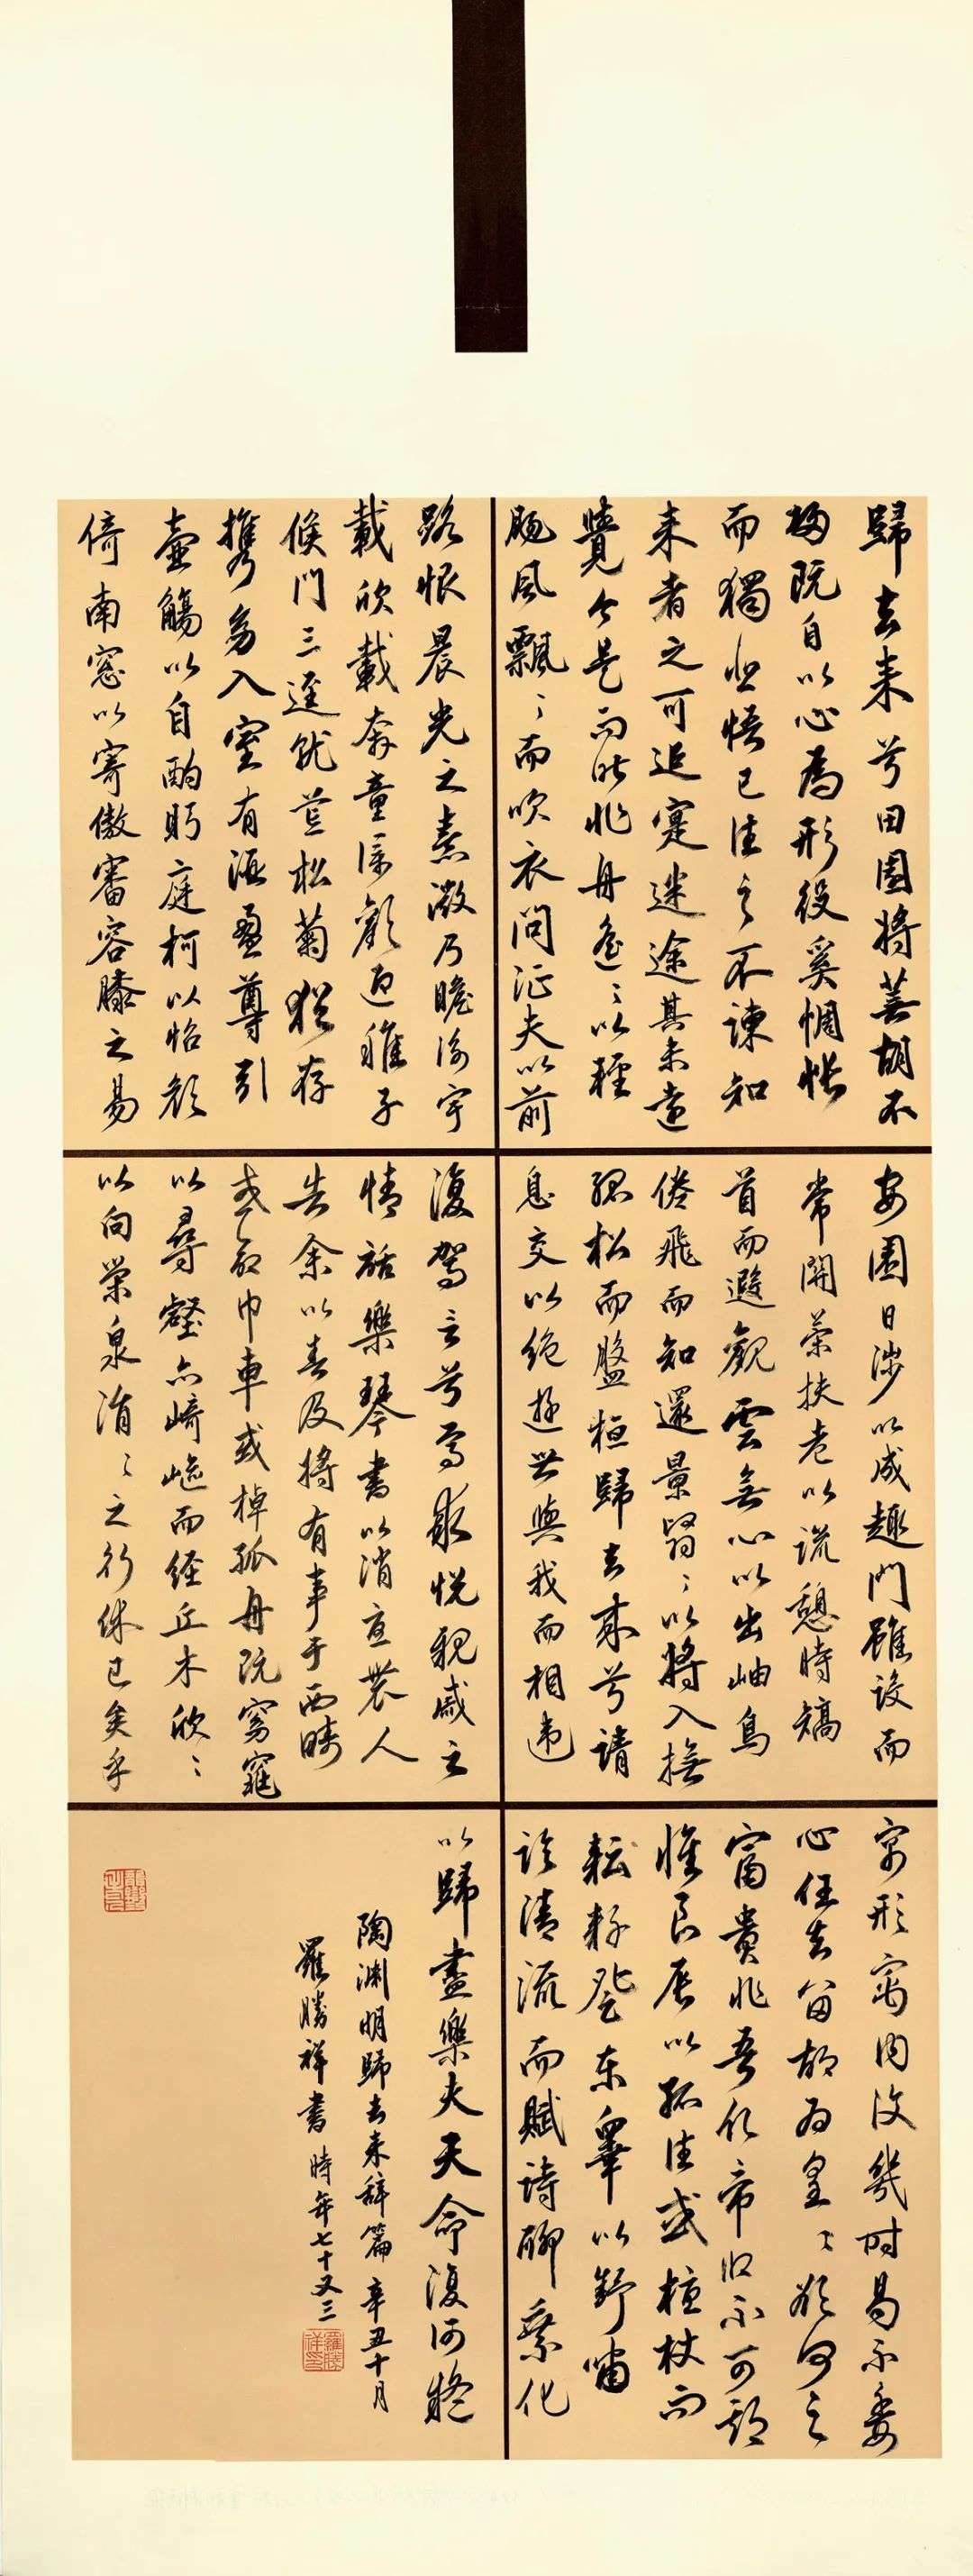 歸去來兮田園將蕪胡不
歸既自以心為形役奚惆悵
而獨悲悟已往之不諫知
来者之可追寔迷途其未遠
覺今是而昨非舟遙〻以輕
颺風飄〻而吹衣問征夫以前
路恨晨光之熹微乃瞻衡宇
載欣載奔童僕歡迎稚子
候門三逕就荒松菊猶存
攜幼入室有酒盈尊引
壺觴以自酌眄庭柯以怡顏
倚南窓以寄傲審容膝之易
安園日涉以成趣門雖設而
常關策扶老以流憩時矯
首而遐觀雲無心以出岫鳥
倦飛而知還景翳〻以將入撫
孤松而盤桓歸去来兮請
息交以绝遊世與我而相遗
復駕言兮焉求悅親戚之
情話樂琴書以消憂農人
告余以春及將有事于西疇
或命巾車或棹孤舟既窈窕
以尋壑亦崎嶇而經丘木欣〻
以向榮泉涓〻之行休已矣乎
寓形寓内復幾时曷不委
心任去留胡为皇〻欲何之
富貴非吾仪帝鄉不可期
懷良辰以孤往或植杖而
耘耔登东皋以舒嘯
臨清流而賦詩聊乘化
以歸盡樂夫天命復何疑
陶渊明歸去来辞篇辛丑十月
羅勝祥書時年七十又三
羅勝祥印